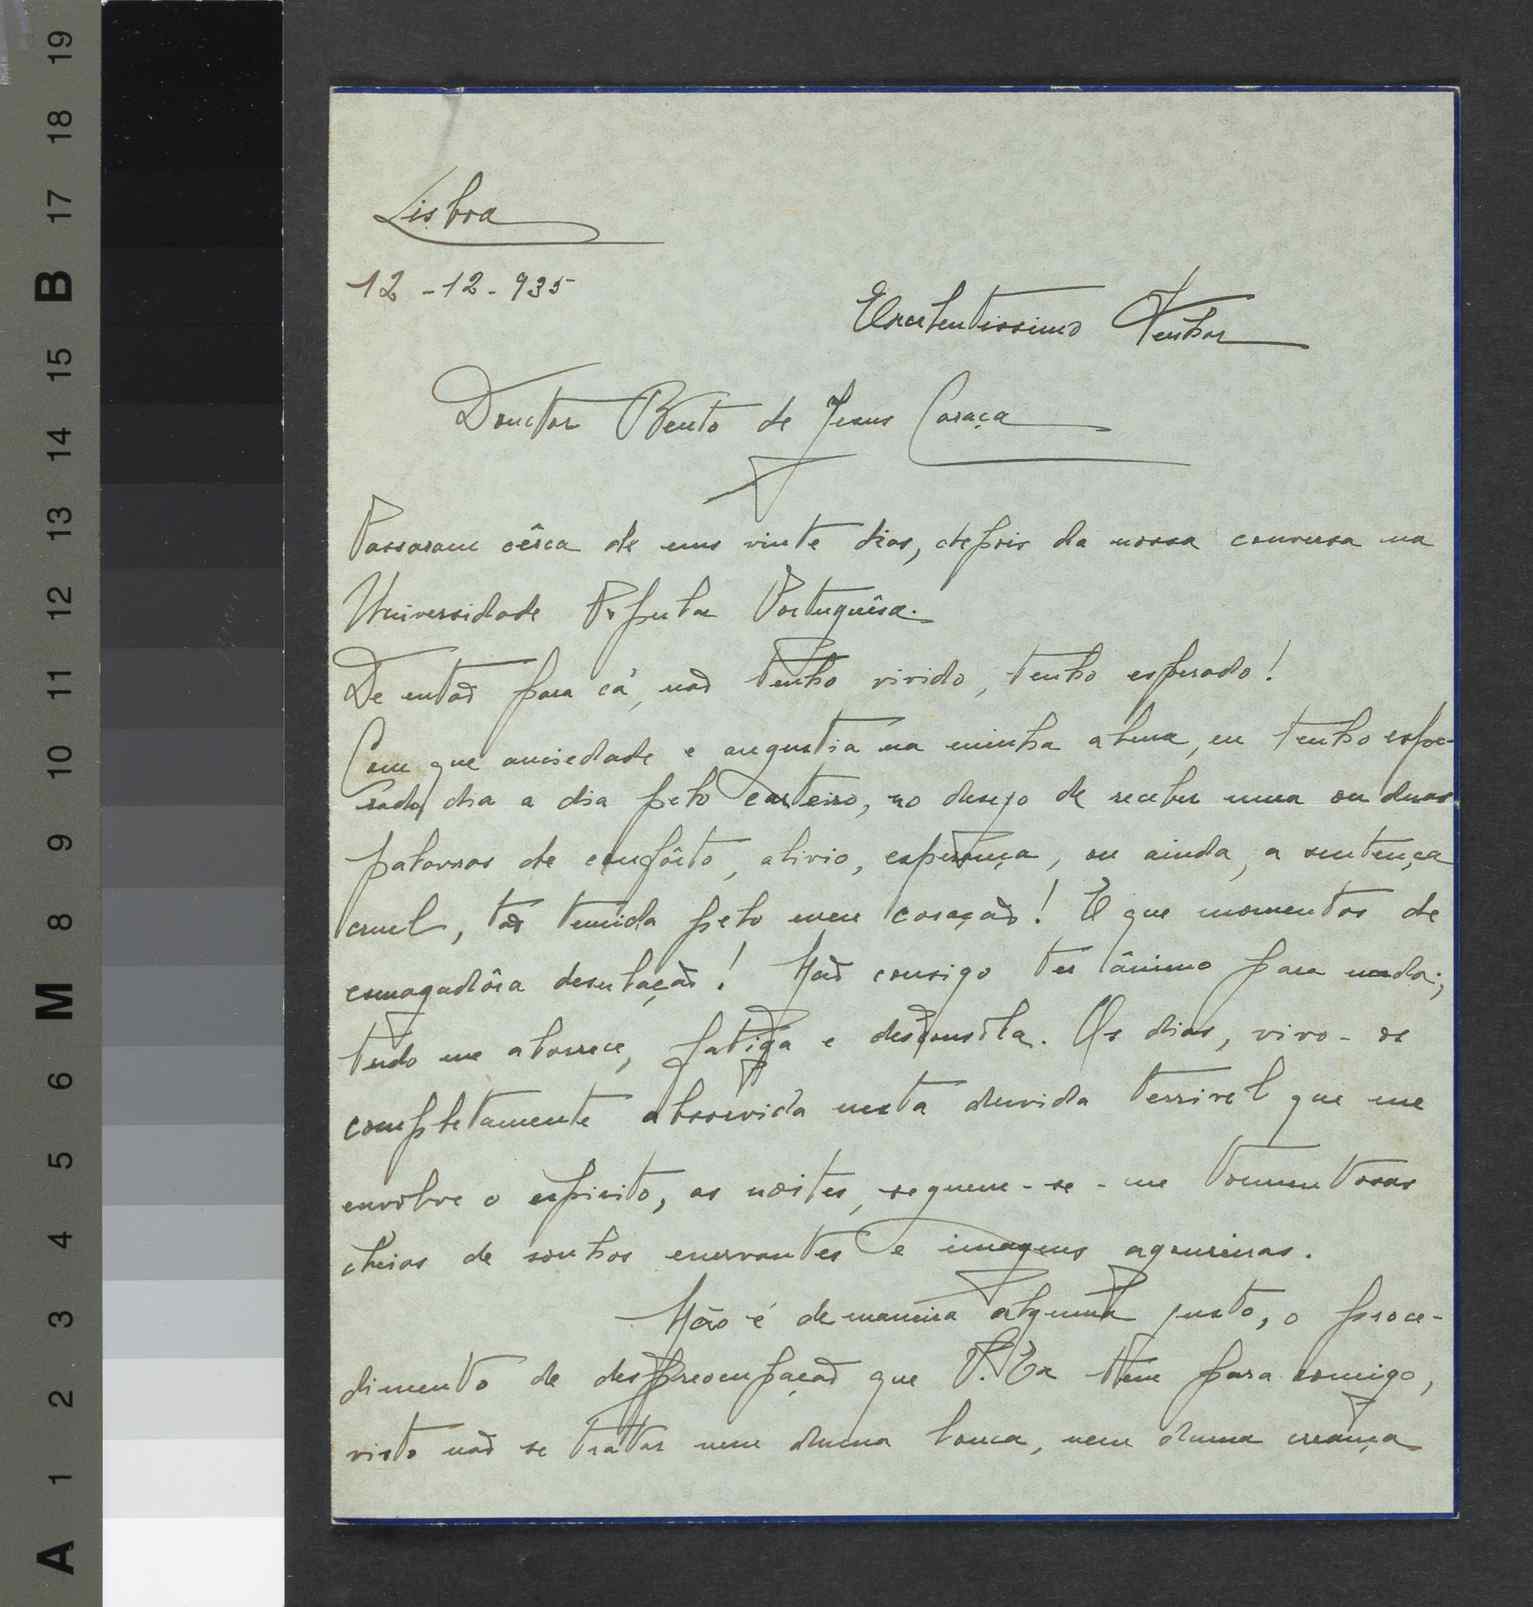 Lisboa
12-12-935
Excelentissimo Senhor
Douctor Bento de Jesus Caraça
Passaram cêrca de uns vinte dias, depois da nossa conversa na
Universidade Popular Portuguêsa.
De então para cá, não tenho vivido, tenho esperado!
Com que anciedade e angustia na minha alma, eu tenho espe-
rado, dia a dia pelo carteiro, no desejo de receber uma ou duas
palavras de confôrto, alivio, esperança, ou ainda, a sentença
cruel, tão temida pelo meu coração! E que momentos de
esmagadôra desolação! Não consigo ter ânimo para nada;
tudo me aborrece, fatiga e desconsóla. Os dias, vivo-os
completamente absorvida nesta duvida terrivel que me
envolve o espirito, as noites, seguem-se-me tormentosas
cheias de sonhos enervantes e imagens agoureiras.
Não é de maneira alguma justo, o proce-
dimento de despreocupação que V. Ex tem para comigo,
visto não se tratar nem duma louca, nem duma creança
A 1 2 3 4 5 6 M 8 9 10 11 12 13 14 15 B 17 18 19